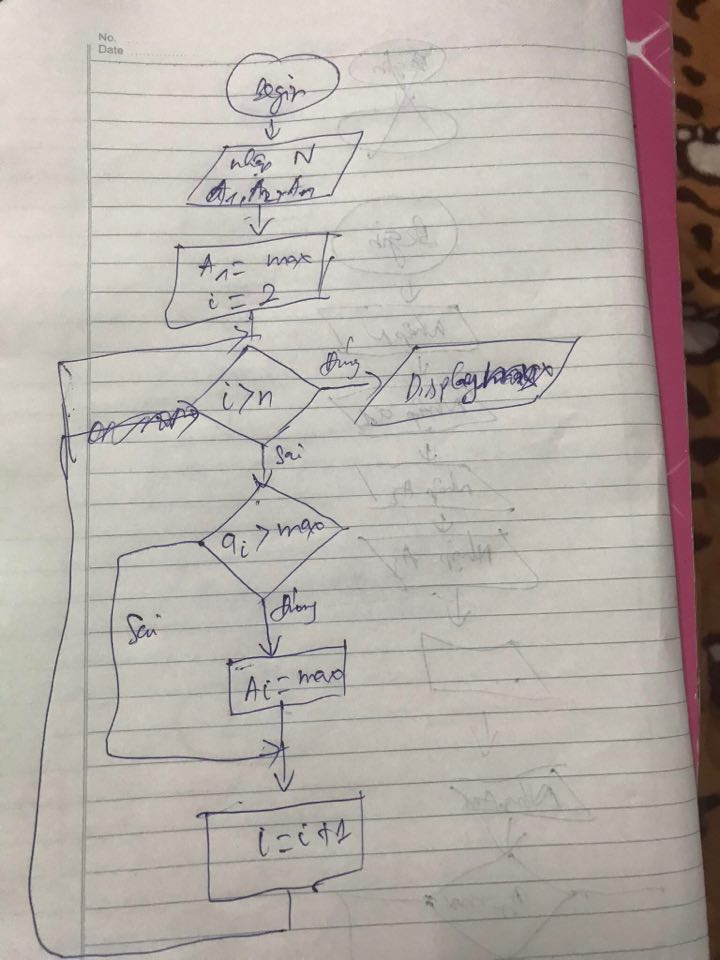 No.
Date
Begin
nhập N
A1, A2, An
A1 = max
i = 2
i > n
Đúng
Display max
Sai
ai > max
Sai
Đúng
Ai = max
i = i + 1